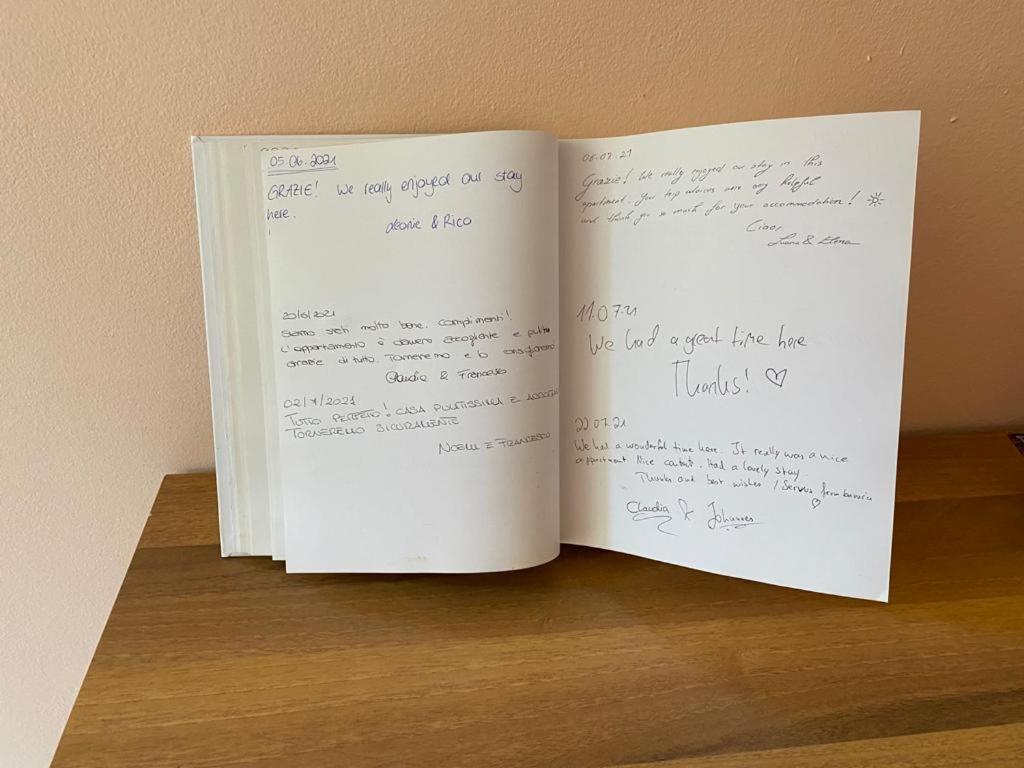 05.06.2021
GRAZIE! We really enjoyed our stay
here.
& Rico
20/6/2021
Siamo stati molto bene. Complimenti!
L'appartamento è davvero accogliente e pulito
Grazie di tutto. Torneremo e lo consiglieremo
Claudia & Francesco
02/7/2021
TUTTO PERFETTO! CASA PULITISSIMA E
TORNEREMO SICURAMENTE
NOEMI E FRANCESCO
06.07.21
Grazie! We really enjoyed our stay in this
apartment. Your trip advices were very helpful
and thank you so much for your accommodation!
Ciao,
& Elena
11.07.21
We had a great time here
Thanks! ♡
22.07.21
We had a wonderful time here. It really was a nice
appartment. Nice contact. Had a lovely stay.
Thanks and best wishes / Servus from bavaria
♡
Claudia & Johannes